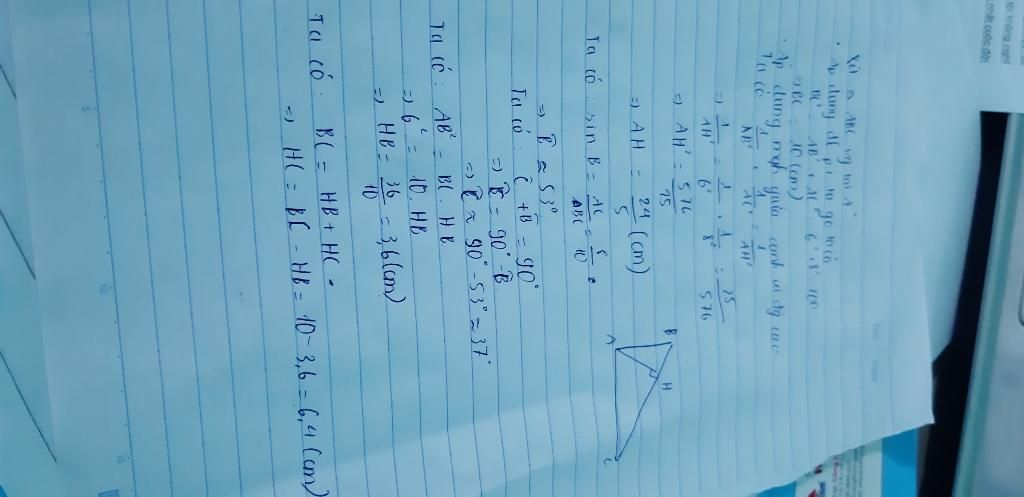 Xét Δ ABC vg tại A
• Áp dụng đl pi ta go ta có
BC² = AB² + AC² = 6² + 8² = 100
⇒ BC = 10 (cm)
• Áp dụng mqh giữa cạnh và đg cao
Ta có 1/AB² + 1/AC² = 1/AH²
⇒ 1/AH² = 1/6² + 1/8² = 25/576
⇒ AH² = 576/25
⇒ AH = 24/5 (cm)
Ta có : sin B = AC/BC = 8/10
⇒ B̂ ≈ 53°
Ta có : Ĉ + B̂ = 90°
⇒ Ĉ = 90° - B̂
⇒ Ĉ ≈ 90° - 53° ≈ 37°
Ta có : AB² = BC . HB
⇒ 6² = 10 . HB
⇒ HB = 36/10 = 3,6 (cm)
Ta có : BC = HB + HC
⇒ HC = BC - HB = 10 - 3,6 = 6,4 (cm)
B
H
A
C